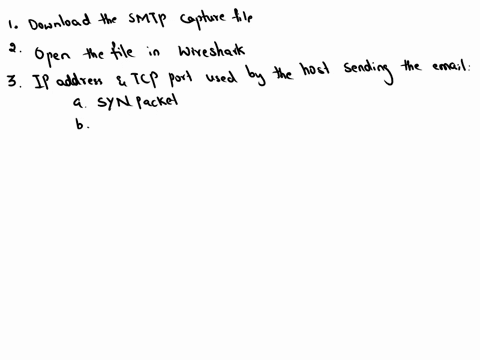 1. Download the SMTP capture file
2. Open the file in Wireshark
3. IP address & TCP port used by the host sending the email:
a. SYN Packet
b.